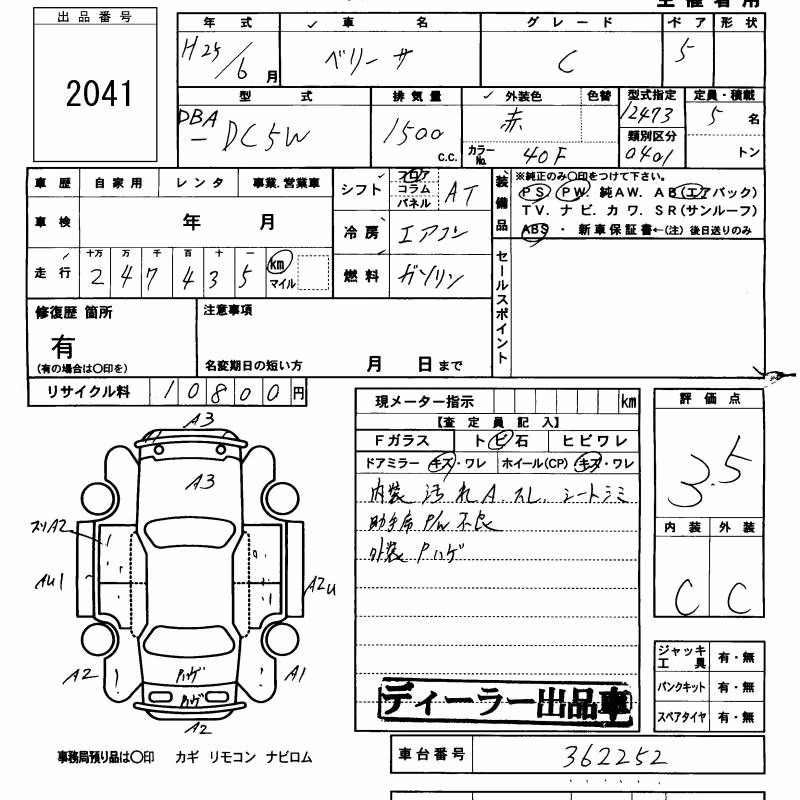 出品番号
2041
年式 車名 グレード ドア 形状
H25/6月 ベリーサ C 5
型式 排気量 外装色 色替 型式指定 定員・積載
DBA-DC5W 1500c.c. 赤 12473 5名
カラーNo. 40F 類別区分 0401 トン
車歴 自家用 レンタ 事業.営業車
車検 年 月
走行 十万 万 千 百 十 一 km マイル
2 4 7 4 3 5
シフト フロア コラム パネル AT
冷房 エアコン
燃料 ガソリン
装備品
※純正のみ○印をつけて下さい。
PS. PW. 純AW. AB(エアバック)
TV. ナビ. カワ. SR(サンルーフ)
ABS ・ 新車保証書←(注) 後日送りのみ
セールスポイント
修復歴 箇所
有
(有の場合は○印を)
注意事項
名変期日の短い方 月 日まで
リサイクル料 10800円
現メーター指示 km
【査定員記入】
Fガラス ト ビ 石 ヒビワレ
ドアミラー キズ・ワレ ホイール(CP) キズ・ワレ
内装 汚れA スレ、シートシミ
助手席 P/W 不良
外装 Pハゲ
ディーラー出品車
評価点
3.5
内装 外装
C C
ジャッキ工具 有・無
パンクキット 有・無
スペアタイヤ 有・無
A3
A3
スリA2
AU1
A2U
A2
A1
Pハゲ
Pハゲ
A2
事務局預り品は○印 カギ リモコン ナビロム
車台番号 362252